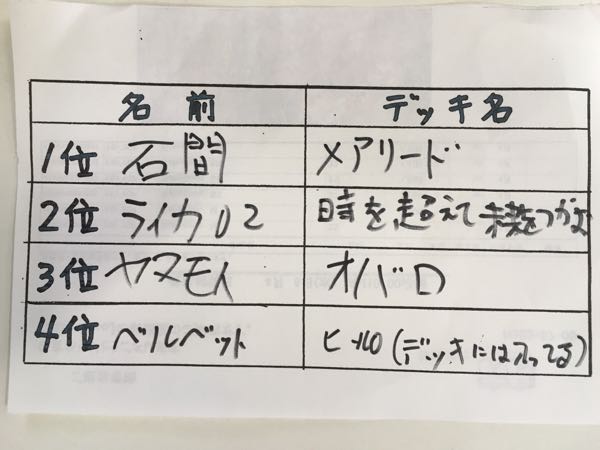 名前 デッキ名
1位 石間 メアリード
2位 ライカ02 時を超えて 未来をつかめ
3位 ヤスモト オバロ
4位 ベルベット (デッキには入ってる)